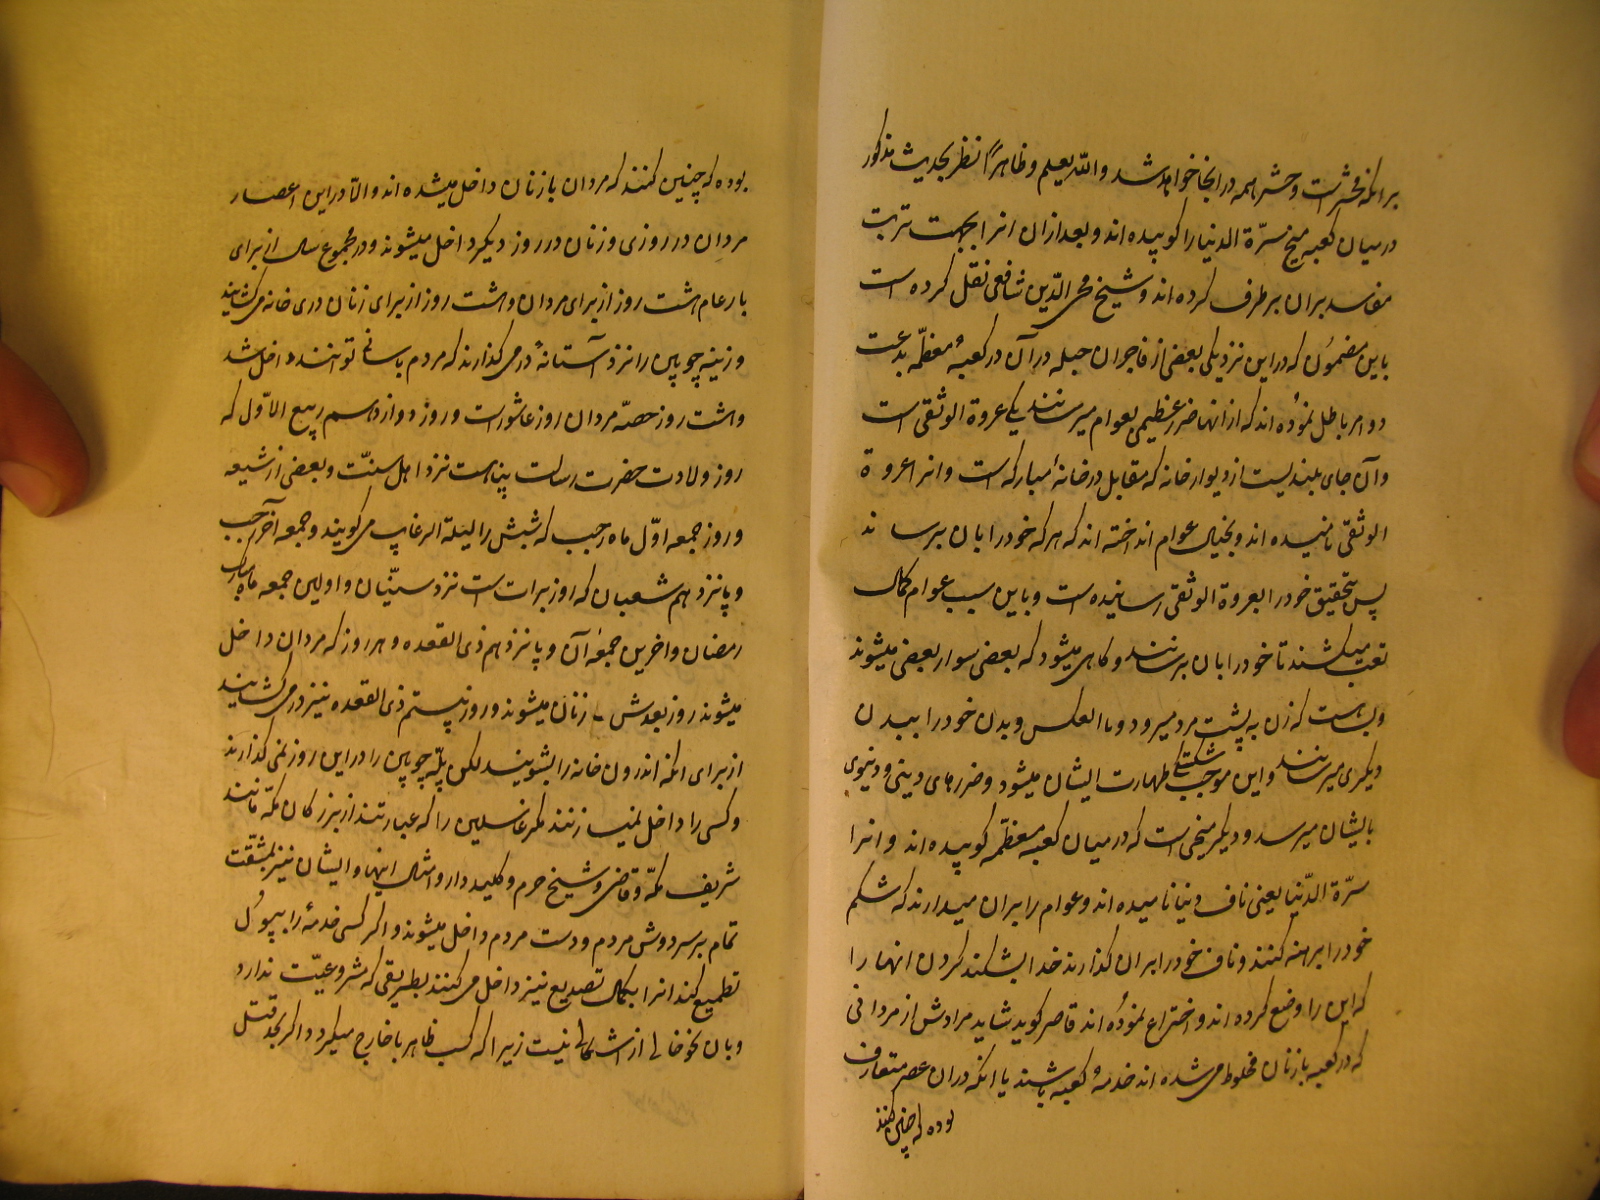 برانکه محشر است و حشر همه در انجا خواهد شد والله یعلم و ظاهراً نظر بحدیث مذکور
در میان کعبه میخ سرّة الدنیا را کوبیده اند و بعد ازان انرا بجهت ترتب
مفاسد بران برطرف کرده اند و شیخ محی الدّین شافعی نقل کرده است
باین مضمون که در این نزدیکی بعضی از فاجران حیله در آن در کعبهٔ معظّمه بدعت
دو امر باطل نموده اند که از انها ضرر عظیمی بعوام میرسانند یکی عروة الوثقی است
و آن جای بلندیست از دیوار خانه که مقابل در خانهٔ مبارکه است و انرا عروة
الوثقی نامیده اند و بخیال عوام انداخته اند که هر که خود را بان برساند
پس بتحقیق خود را بعروة الوثقی رسانیده است و باین سبب عوام کمال
تعب میکشند تا خود را بان برسانند و کاهی میشود که بعضی سوار بعضی میشوند
و بساست که زن به پشت مرد میرود و بالعکس و بدن خود را ببدن
دیکری میرسانند و این موجب شکستکی طهارت ایشان میشود و ضررهای دینی و دنیوی
بایشان میرسد و دیکر میخی است که در میان کعبه معظّمه کوبیده اند و انرا
سرّة الدّنیا یعنی ناف دنیا نامیده اند و عوام را بران میدارند که شکم
خود را برهنه کنند و ناف خود را بران کذارند خدا بشکند کردن انها را
که این را وضع کرده اند و اختراع نموده اند قاصر کوید شاید مرادش از مردانی
که در کعبه با زنان مخلوط می شده اند خدمهٔ کعبه باشند یا انکه دران عصر متعارف
بوده که چنین کنند
بوده که چنین کنند که مردان با زنان داخل میشده اند و الّا در این اعصار
مردان در روزی و زنان در روز دیکر داخل میشوند و در مجموع سال از برای
بار عام هشت روز از برای مردان و هشت روز از برای زنان در خانه می کشایند
و زینه چوبین را نزد آستانهٔ در می کذارند که مردم باسانی توانند داخل شد
و هشت روز حصّه مردان روز عاشور است و روز دوازدهم ربیع الاوّل که
روز ولادت حضرت رسالت پناهست نزد اهل سنّت و بعضی از شیعه
و روز جمعه اوّل ماه رجب که شبش را لیلة الرغایب می کویند و جمعه آخر رجب
و پانزدهم شعبان که روز برات است نزد سنّیان و اولین جمعه ماه مبارک
رمضان و اخرین جمعهٔ آن و پانزدهم ذی القعده و هر روز که مردان داخل
میشوند روز بعدش زنان میشوند و روز بیستم ذی القعده نیز در می کشایند
از برای انکه اندرون خانه را بشویند لکن پلّه چوبین را در این روز نمی کذارند
و کسی را داخل نمیسازند مکر غاسلین را که عبارتند از بزرکان مکّه مانند
شریف مکّه و قاضی و شیخ حرم و کلید دار و امثال اینها و ایشان نیز بمشقّت
تمام بر سر دوش مردم و دست مردم داخل میشوند و اکر کسی خدمهٔ را بپول
تطمیع کند انرا بکمال تصدیع نیز داخل می کنند بطریقی که مشروعیّت ندارد
و بان نحو خالی از اشکالی نیست زیرا که کسب ظاهر باخارج میکردد و اکر بحد قتل